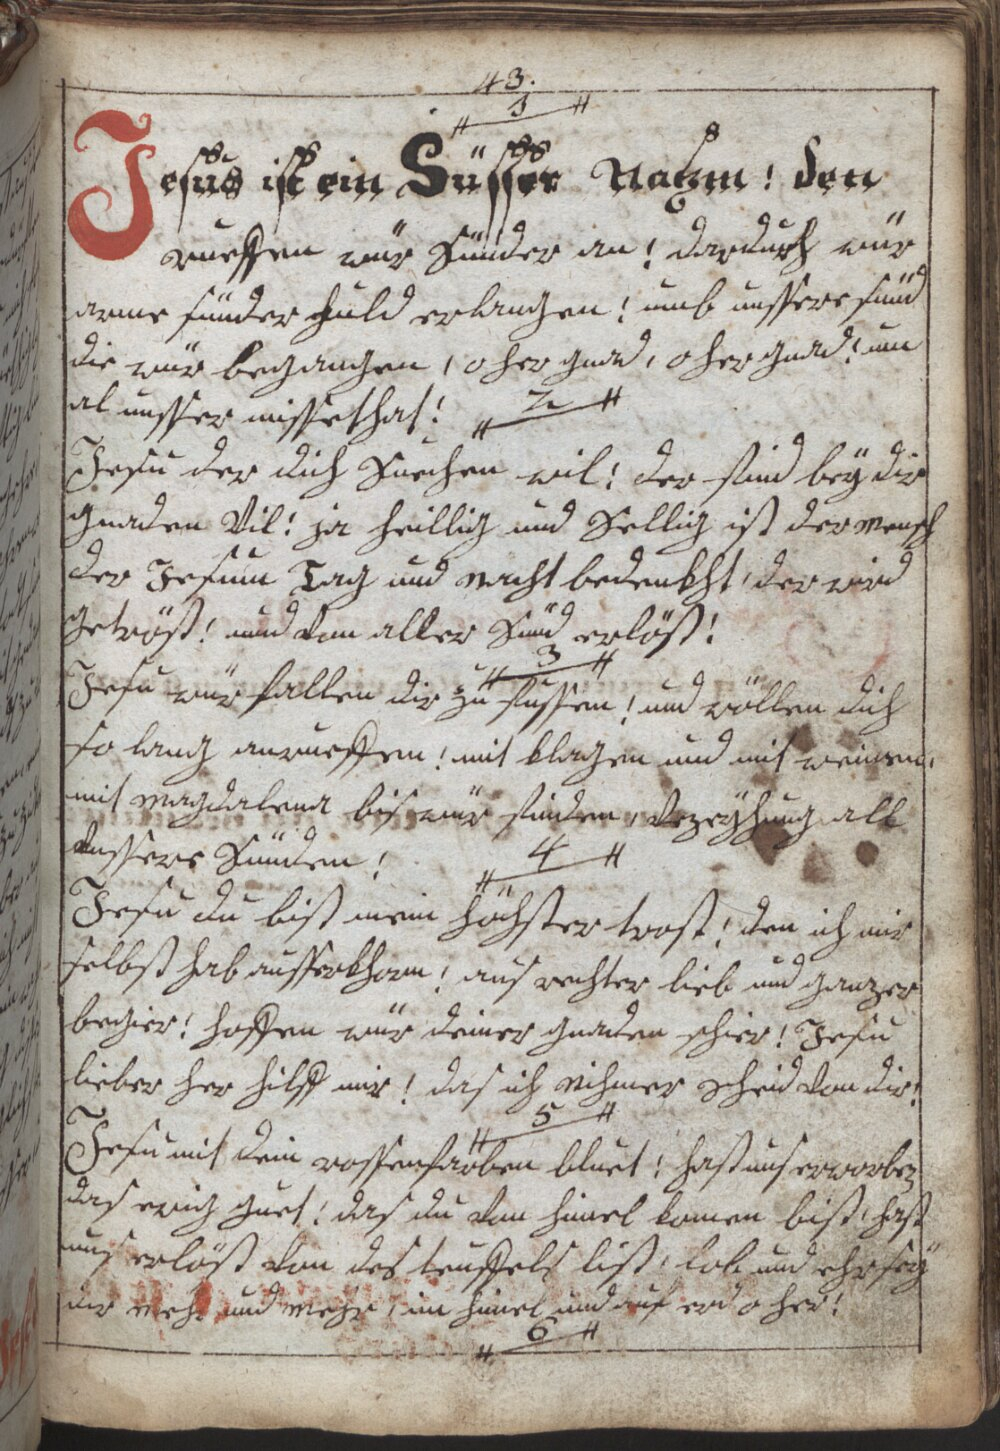 43.
1
Jesus ist ein Süsser Nahm! den
rueffen wür Sünder an! dardurch wür
arme sünder huld erlangen! umb unssere sünd
die wür begangen, o her gnad, o her gnad! um
al unsser missethat!
2
Jesu der dich Suechen wil! der find beÿ dir
gnaden Vil! ja heillig und Sellig ist der mensch
der Jesum Tag und nacht bedenkht, der wird
getröst! und Von aller Sünd erlöst!
3
Jesu wür fallen dir zu fussen! und wöllen dich
so lang anrueffen! mit klagen und mit weinen,
mit Magdalena bis wür finden, Vezeÿhung all
Unssere Sünden!
4
Jesu du bist mein höchster trost! den ich mir
selbst hab ausserkhorn! aus rechter lieb und ganzer
begier! hoffen wür deiner gnaden schier! Jesu
lieber her hilff mir! das ich nihmer scheid Von dir!
5
Jesu mit dein rossenfarben bluet! hast uns erworben
das ewig guet! das du Von himel komen bist, hast
uns erlöst Von des teuffels list, lob und ehr seÿ
dir mehr und mehr, im himel und auf erd o her!
6